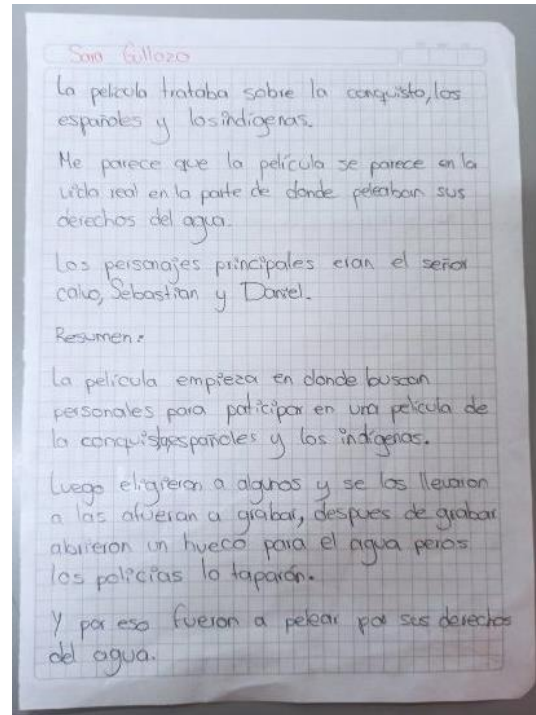 Sara Gullozo
La pelicula trataba sobre la conquista, los
españoles y los indigenas.
Me parece que la película se parece en la
vida real en la parte de donde peleaban sus
derechos del agua.
Los personajes principales eran el señor
calvo, Sebastian y Daniel.
Resumen:
La película empieza en donde buscan
personales para paticipar en una película de
la conquista españoles y los indigenas.
Luego eligieron a algunos y se los llevaron
a las afueran a grabar, despues de grabar
abrieron un hueco para el agua peros
los policias lo taparón.
Y por eso fueron a pelear por sus derechos
del agua.